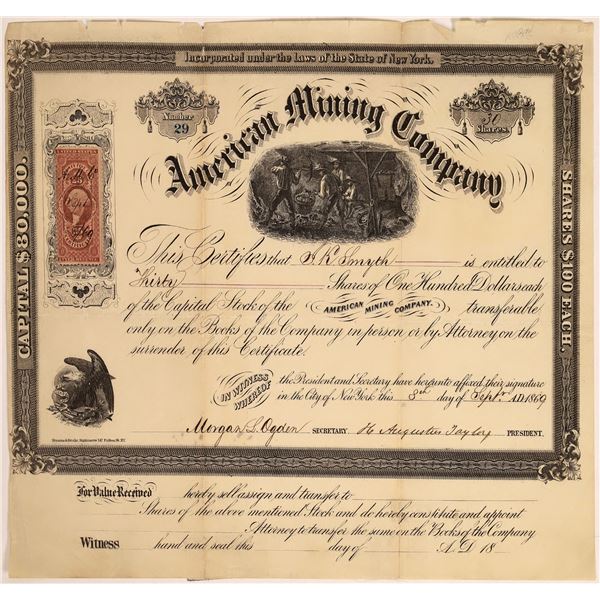 Incorporated under the laws of the State of New York.
Number
29
30
Shares
American Mining Company
CAPITAL $80,000.
SHARES $100 EACH.
This Certifies that J. K. Smyth is entitled to
Thirty Shares of One Hundred Dollars each
of the Capital Stock of the AMERICAN MINING COMPANY. transferable
only on the Books of the Company in person or by Attorney on the
surrender of this Certificate.
IN WITNESS WHEREOF the President and Secretary have hereunto affixed their signature
in the City of New York this 8th day of Septr. A.D. 1869
Morgan L. Ogden SECRETARY. H. Augustus Taylor PRESIDENT.
For Value Received hereby sell assign and transfer to
Shares of the above mentioned Stock and do hereby constitute and appoint
Attorney to transfer the same on the Books of the Company
Witness hand and seal this day of A.D. 18